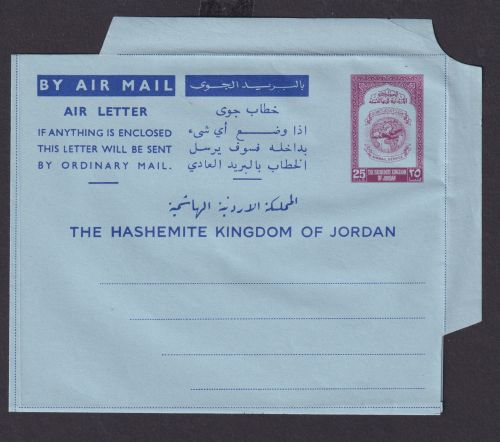 BY AIR MAIL
بالبريد الجوى
AIR LETTER
خطاب جوى
IF ANYTHING IS ENCLOSED
اذا وضع أي شىء
THIS LETTER WILL BE SENT
بداخله فسوف يرسل
BY ORDINARY MAIL.
الخطاب بالبريد العادي
25
THE HASHEMITE KINGDOM
OF JORDAN
٢٥
المملكة الاردنية الهاشمية
THE HASHEMITE KINGDOM OF JORDAN